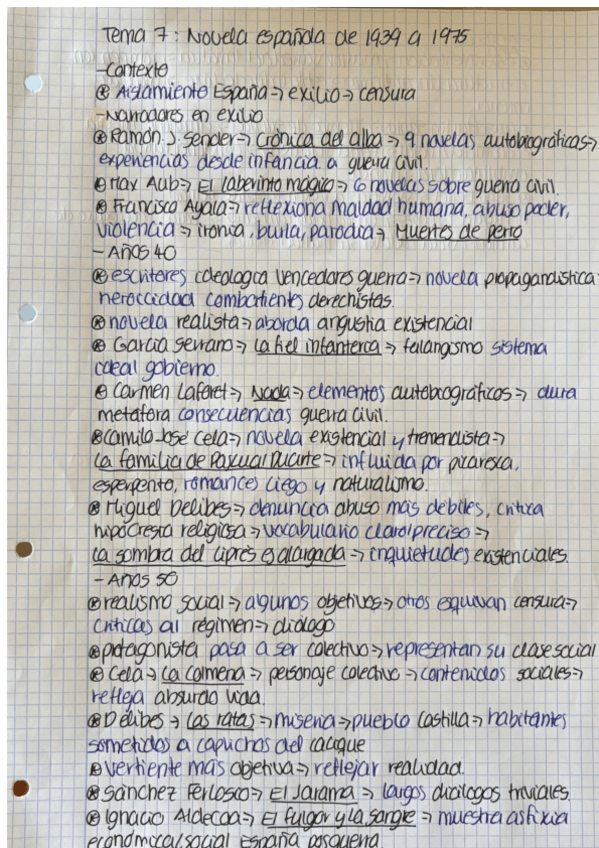 Tema 7: Novela española de 1939 a 1975
-Contexto
⊛ Aislamiento España → exilio → censura
-Narradores en exilio
⊛ Ramón J. Sender → Crónica del alba → 9 novelas autobiográficas →
experiencias desde infancia a guerra civil.
⊛ Max Aub → El laberinto mágico → 6 novelas sobre guerra civil.
⊛ Francisco Ayala → reflexiona maldad humana, abuso poder,
violencia → ironía, burla, parodia → Muertes de perro
- Años 40
⊛ escritores ideología vencedores guerra → novela propagandística
heroicidad combatientes derechistas.
⊛ novela realista → aborda angustia existencial
⊛ García Serrano → La fiel infantería → falangismo sistema
ideal gobierno.
⊛ Carmen Laforet → Nada → elementos autobiográficos → dura
metáfora consecuencias guerra civil.
⊛ Camilo José Cela → novela existencial y tremendista →
La familia de Pascual Duarte → influida por picaresca,
esperpento, romances ciego y naturalismo.
⊛ Miguel Delibes → denuncia abuso más débiles, crítica
hipocresía religiosa → vocabulario claro/preciso →
La sombra del ciprés es alargada → inquietudes existenciales.
- Años 50
⊛ realismo social → algunos objetivos → otros esquivan censura →
críticas al régimen → diálogo
⊛ protagonista pasa a ser colectivo → representan su clase social
⊛ Cela → La Colmena → personaje colectivo → contenidos sociales →
refleja absurdo vida.
⊛ Delibes → Las ratas → miseria → pueblo Castilla → habitantes
sometidos a caprichos del cacique
⊛ vertiente más objetiva → reflejar realidad.
⊛ Sánchez Ferlosio → El Jarama → largos diálogos triviales.
⊛ Ignacio Aldecoa → El fulgor y la sangre → muestra asfixia
económica/social España posguerra.